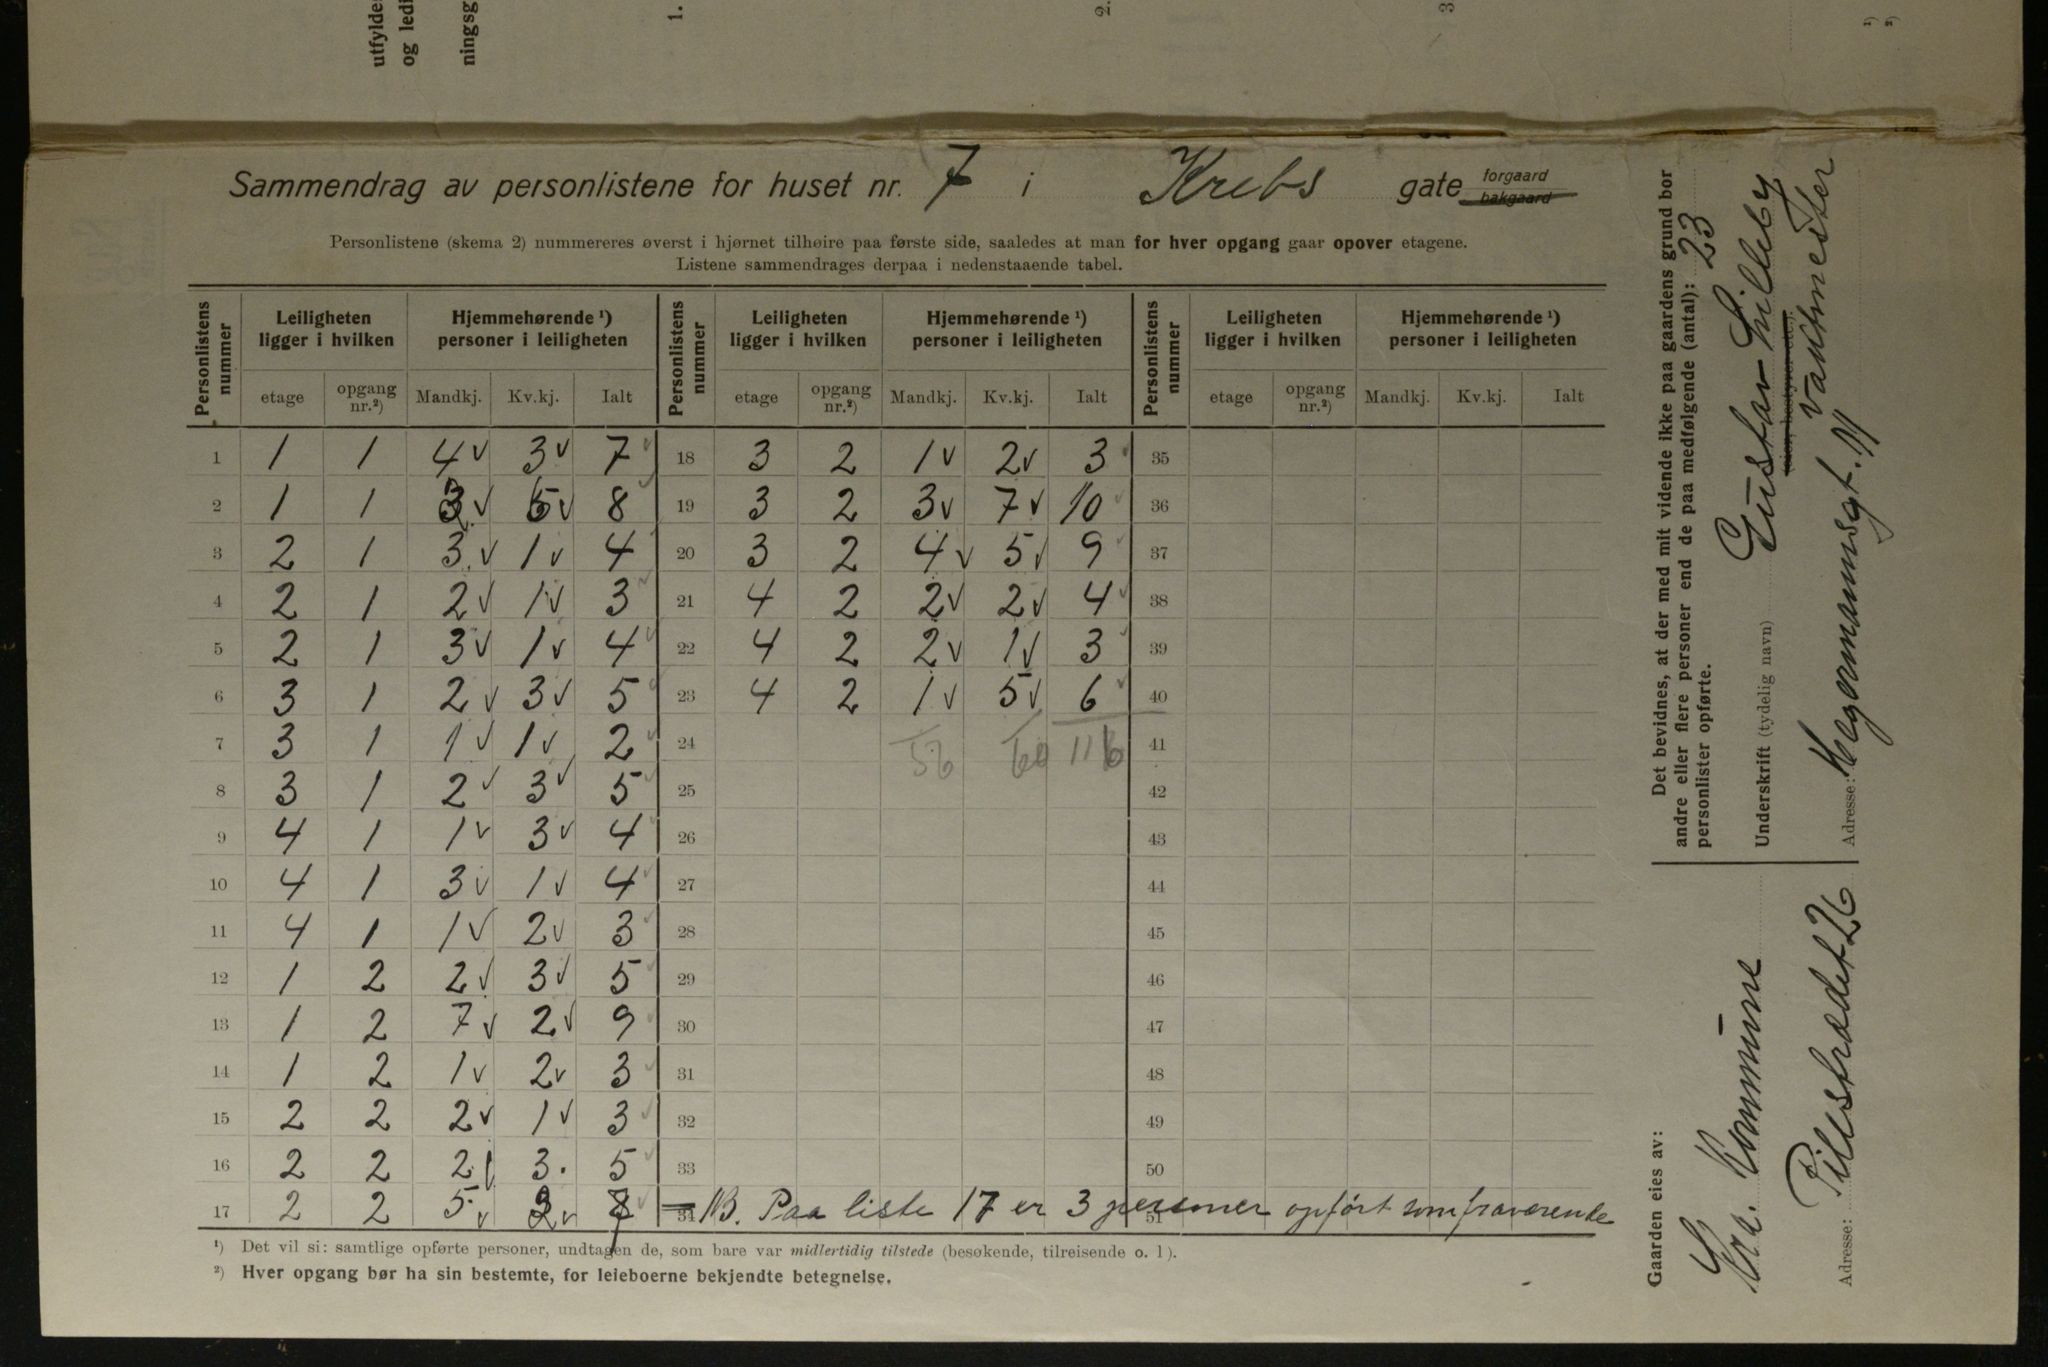 utfylde
og ledi
ningsg
1.
2.
3
¹)
²)
Sammendrag av personlistene for huset nr. 7 i Krebs gate forgaard bakgaard
Personlistene (skema 2) nummereres øverst i hjørnet tilhøire paa første side, saaledes at man for hver opgang gaar opover etagene.
Listene sammendrages derpaa i nedenstaaende tabel.
Personlistens nummer | Leiligheten ligger i hvilken | Hjemmehørende ¹) personer i leiligheten | Personlistens nummer | Leiligheten ligger i hvilken | Hjemmehørende ¹) personer i leiligheten | Personlistens nummer | Leiligheten ligger i hvilken | Hjemmehørende ¹) personer i leiligheten
etage | opgang nr.²) | Mandkj. | Kv.kj. | Ialt | etage | opgang nr.²) | Mandkj. | Kv.kj. | Ialt | etage | opgang nr.²) | Mandkj. | Kv.kj. | Ialt
1 1 1 4 v 3 v 7 18 3 2 1 v 2 v 3 35
2 1 1 3 v 5 v 8 19 3 2 3 v 7 v 10 36
3 2 1 3 v 1 v 4 20 3 2 4 v 5 v 9 37
4 2 1 2 v 1 v 3 21 4 2 2 v 2 v 4 38
5 2 1 3 v 1 v 4 22 4 2 2 v 1 v 3 39
6 3 1 2 v 3 v 5 23 4 2 1 v 5 v 6 40
7 3 1 1 v 1 v 2 24 56 60 116 41
8 3 1 2 v 3 v 5 25 42
9 4 1 1 v 3 v 4 26 43
10 4 1 3 v 1 v 4 27 44
11 4 1 1 v 2 v 3 28 45
12 1 2 2 v 3 v 5 29 46
13 1 2 7 v 2 v 9 30 47
14 1 2 1 v 2 v 3 31 48
15 2 2 2 v 1 v 3 32 49
16 2 2 2 3. 5 33 50
17 2 2 5 v 2 v 7 34 NB. Paa liste 17 er 3 personer opført som fraværende 51
¹) Det vil si: samtlige opførte personer, undtagen de, som bare var midlertidig tilstede (besøkende, tilreisende o. l.).
²) Hver opgang bør ha sin bestemte, for leieboerne bekjendte betegnelse.
Det bevidnes, at der med mit vidende ikke paa gaardens grund bor
andre eller flere personer end de paa medfølgende (antal): 23
personlister opførte.
Underskrift (tydelig navn) Gustav Lilleby
(eier, bestyrer etc.). Vaktmester
Adresse: Hegermannsgt. 11
Gaarden eies av:
Kra. Kommune
Adresse: Pilestrædet 26